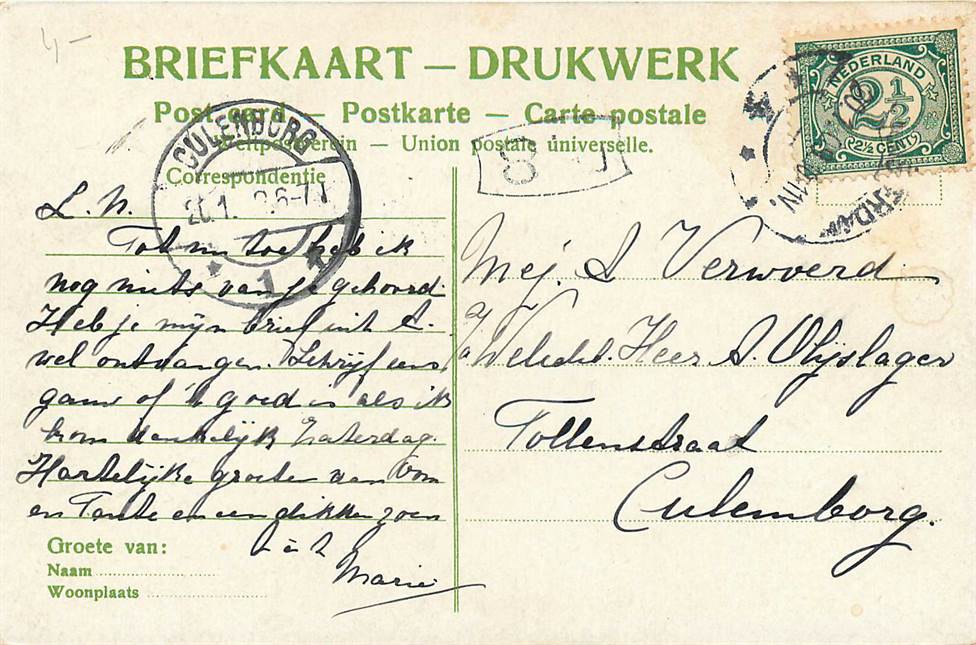 BRIEFKAART — DRUKWERK
Post-card — Postkarte — Carte postale
Weltpostverein — Union postale universelle.
Correspondentie
NEDERLAND
2½
2½ CENT
CULENBORG
1
8
L. N.
Tot nu toe heb ik
nog niets van je gehoord
Heb je mijn brief uit A.
wel ontvangen. Schrijf eens
gauw of 't goed is als ik
kom denkelijk Zaterdag.
Hartelijke groeten van Oom
en Tante en een dikken zoen
Marie
Groete van:
Naam
Woonplaats
Mej. A Verwoerd
Heer A. Olijslager
Tollenstraat
Culemborg.